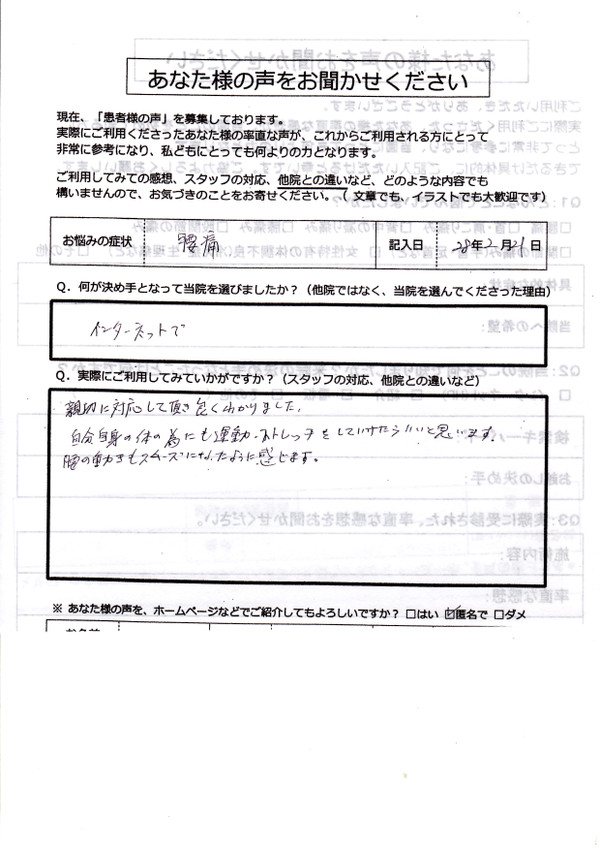 あなた様の声をお聞かせください
現在、「患者様の声」を募集しております。
実際にご利用くださったあなた様の率直な声が、これからご利用される方にとって
非常に参考になり、私どもにとっても何よりの力となります。
ご利用してみての感想、スタッフの対応、他院との違いなど、どのような内容でも
構いませんので、お気づきのことをお寄せください。（ 文章でも、イラストでも大歓迎です）
お悩みの症状 腰痛 記入日 28年2月21日
Q．何が決め手となって当院を選びましたか？（他院ではなく、当院を選んでくださった理由）
インターネットで
Q．実際にご利用してみていかがですか？（スタッフの対応、他院との違いなど）
親切に対応して頂き良くわかりました。
自分自身の体の為にも運動、ストレッチをしていけたらいいと思います。
腰の動きもスムーズになったように感じます。
※ あなた様の声を、ホームページなどでご紹介してもよろしいですか？ □はい ☑匿名で □ダメ